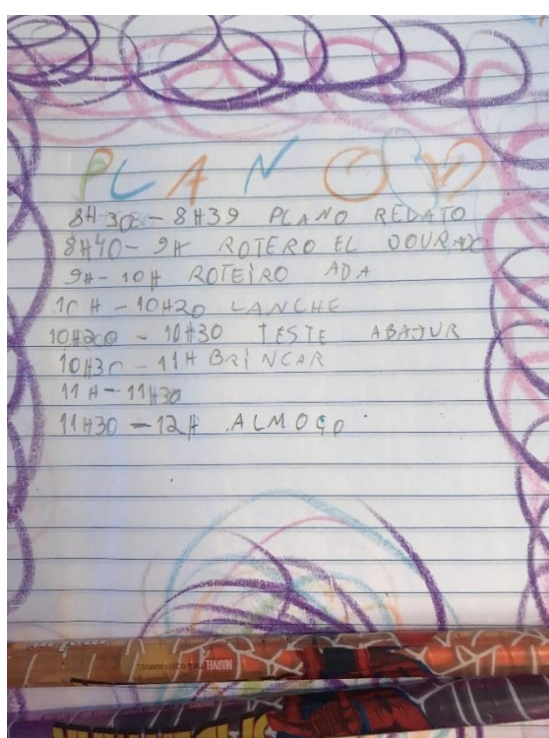 PLANO
8H30 - 8H39 PLANO REDATO
8H40 - 9H ROTERO EL DOURADO
9H - 10H ROTEIRO ADA
10H - 10H20 LANCHE
10H20 - 10H30 TESTE ABAJUR
10H30 - 11H BRINCAR
11H - 11H30
11H30 - 12H ALMOÇO
MARVEL